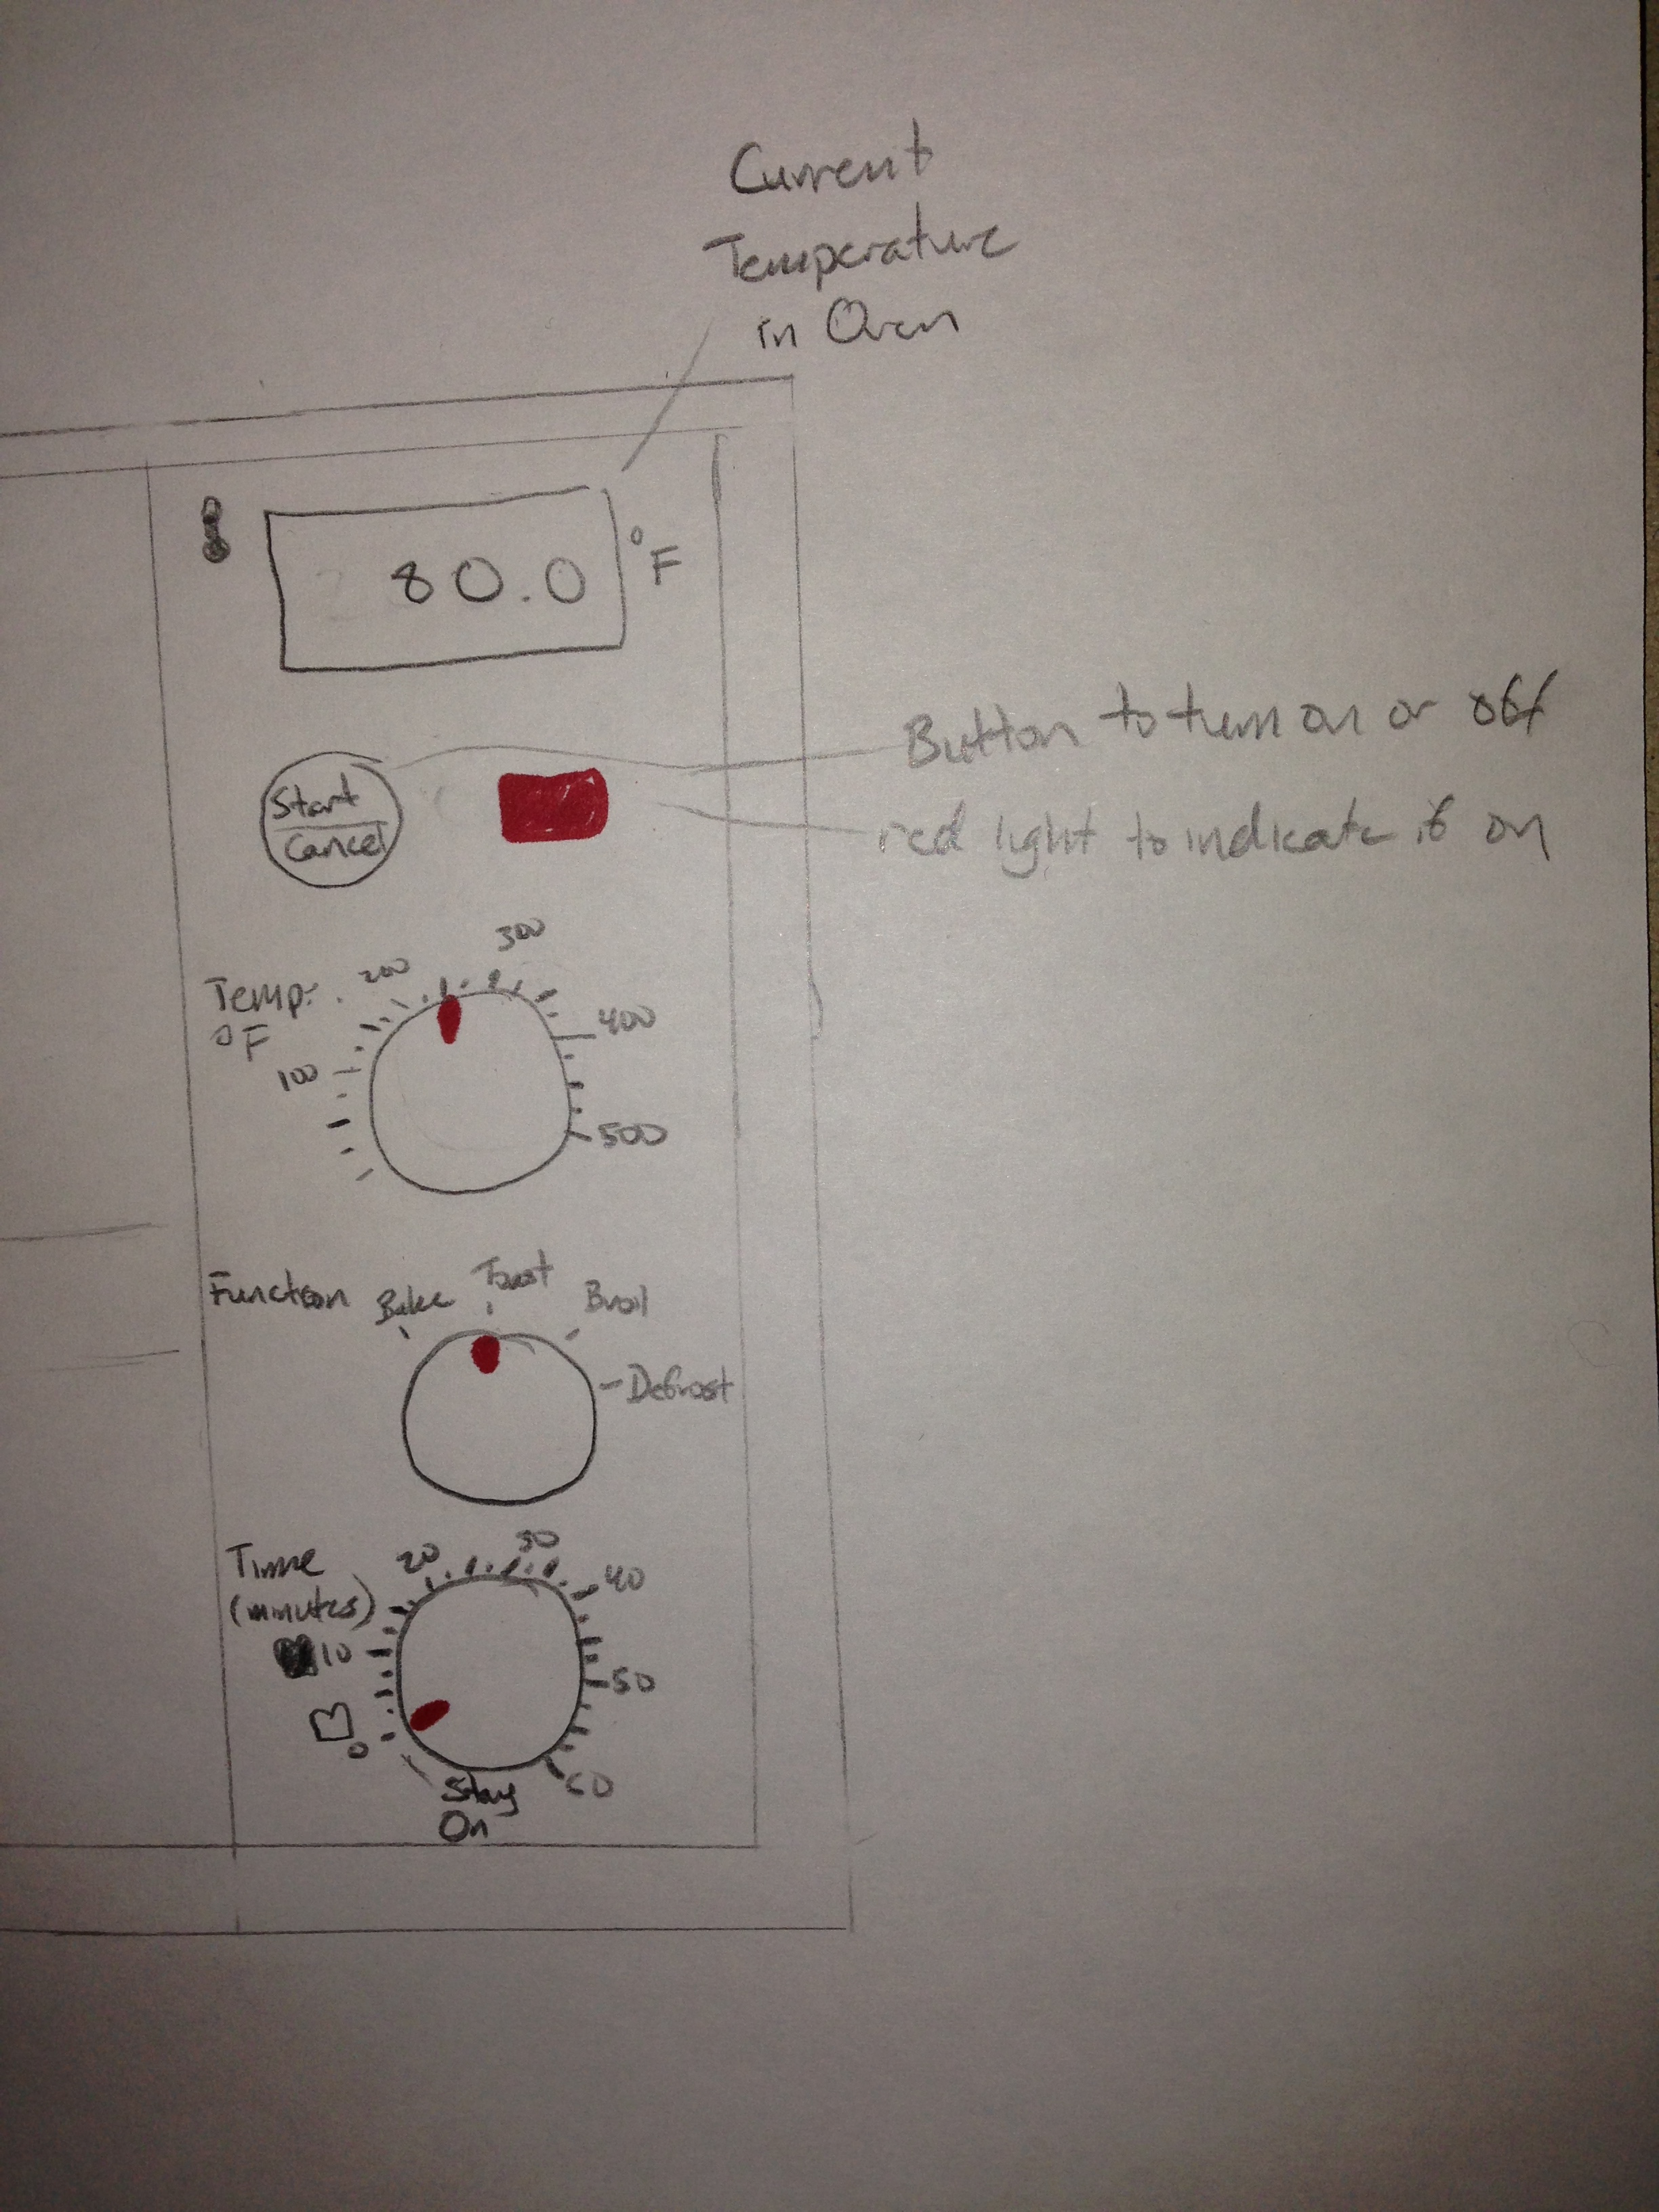 Current
Temperature
in Oven
80.0 °F
Button to turn on or off
Start
Cancel
red light to indicate if on
300
200
Temp.
°F
400
100
500
Function
Bake
Toast
Broil
Defrost
Time
(minutes)
20
30
40
10
50
0
60
Stay
On